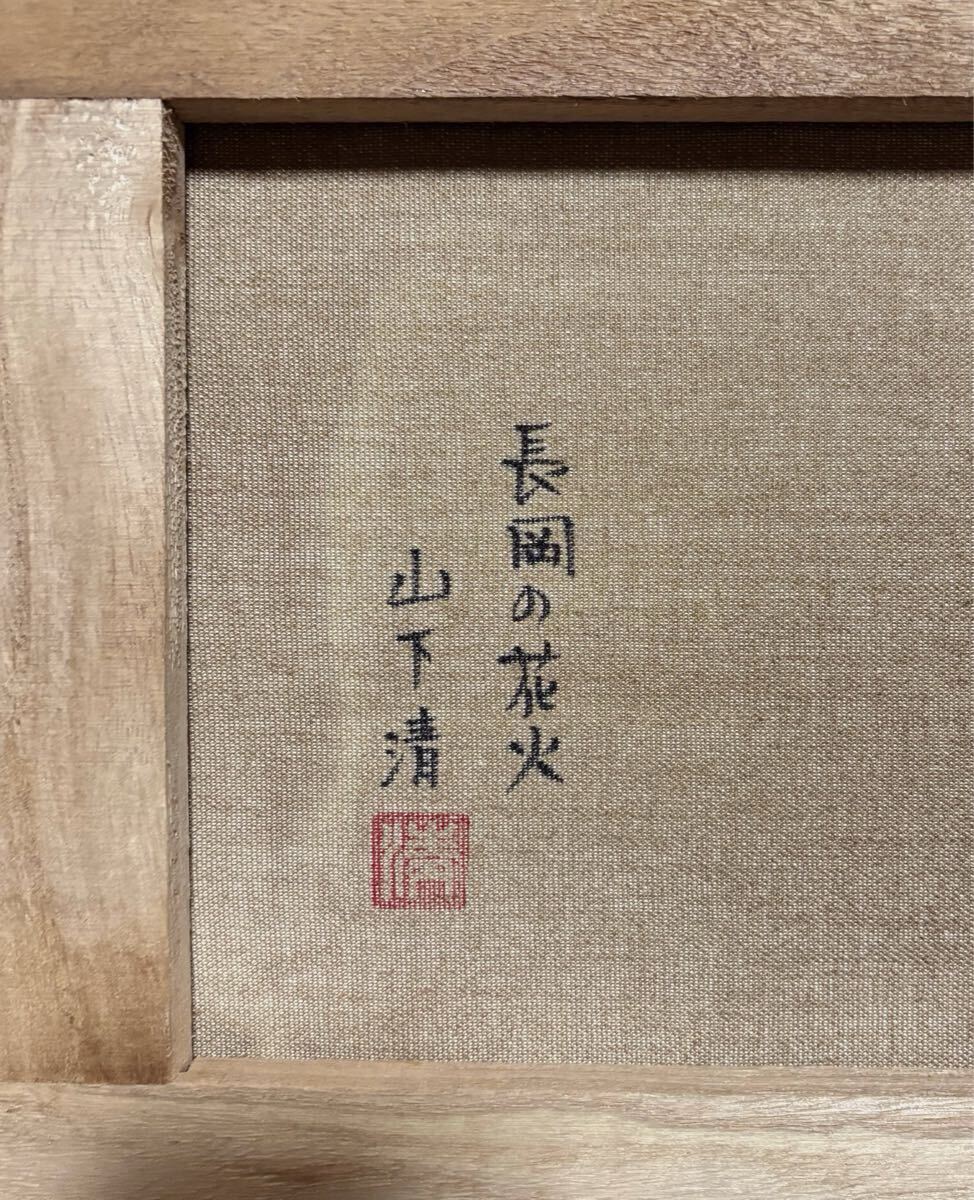 長岡の花火
山下清
清